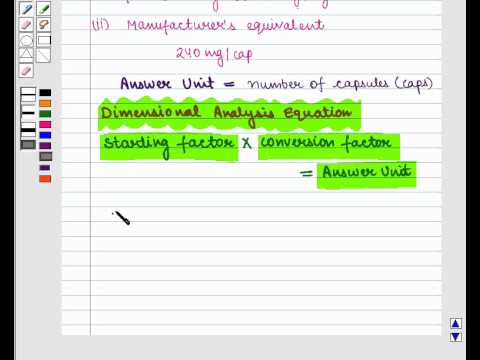 (ii) Manufacturer's equivalent
240 mg/cap
Answer Unit = number of capsules (caps)
Dimensional Analysis Equation
Starting factor × conversion factor
= Answer Unit